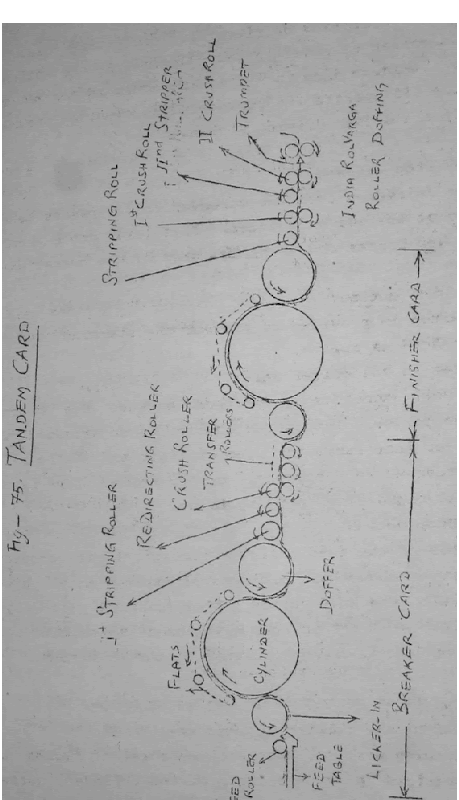 Fig-75. TANDEM CARD
STRIPPING ROLL
Ist CRUSH ROLL
IInd STRIPPER
II CRUSH ROLL
TRUMPET
INDIA ROLVARGA
ROLLER DOFFING
Ist STRIPPING ROLLER
REDIRECTING ROLLER
CRUSH ROLLER
TRANSFER
ROLLERS
FLATS
CYLINDER
DOFFER
FEED
ROLLER
FEED
TABLE
LICKER-IN
BREAKER CARD
FINISHER CARD